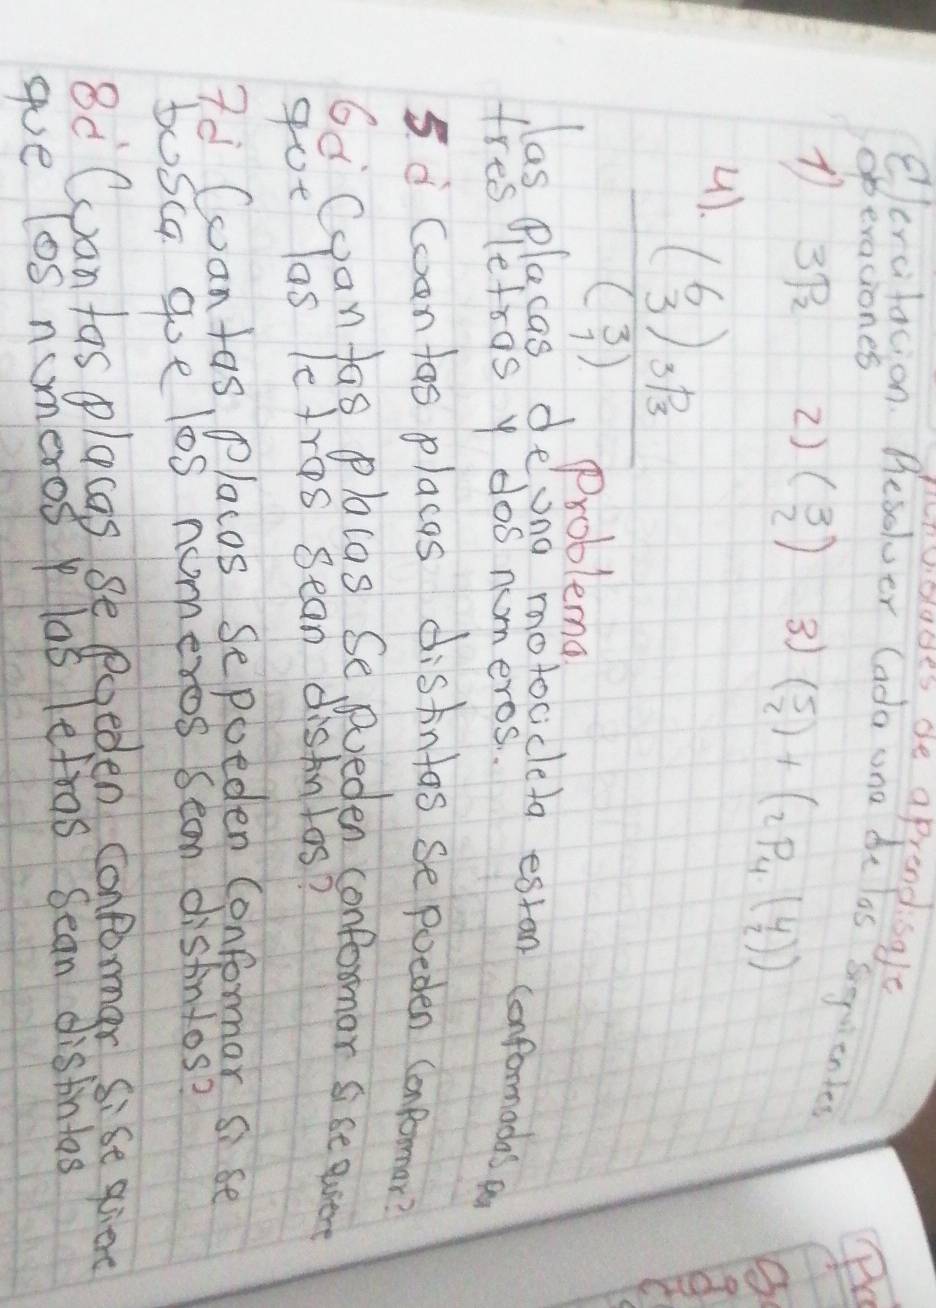 de aprendisaje
Ejercitacion. Resolver Cada una de las siguientes
operaciones
1) 3P2 2) (3 2) 3) (5 2) + (2P4. (4 2))
4). (6 3) 3P3
(3 1)
Problema.
las placas de una motocicleta estan conformadas por
tres letras y dos numeros.
5. ¿ Cuantas placas distintas se pueden conformar?
6 ¿ Cuantas placas se pueden conformar si se quiere
que las letras sean distintas?
7 ¿ Cuantas placas se pueden conformar si se
busca que los numeros sean distintos?
8 ¿ Cuantas placas se pueden conformar si se quiere
que los numeros y las letras sean distintas